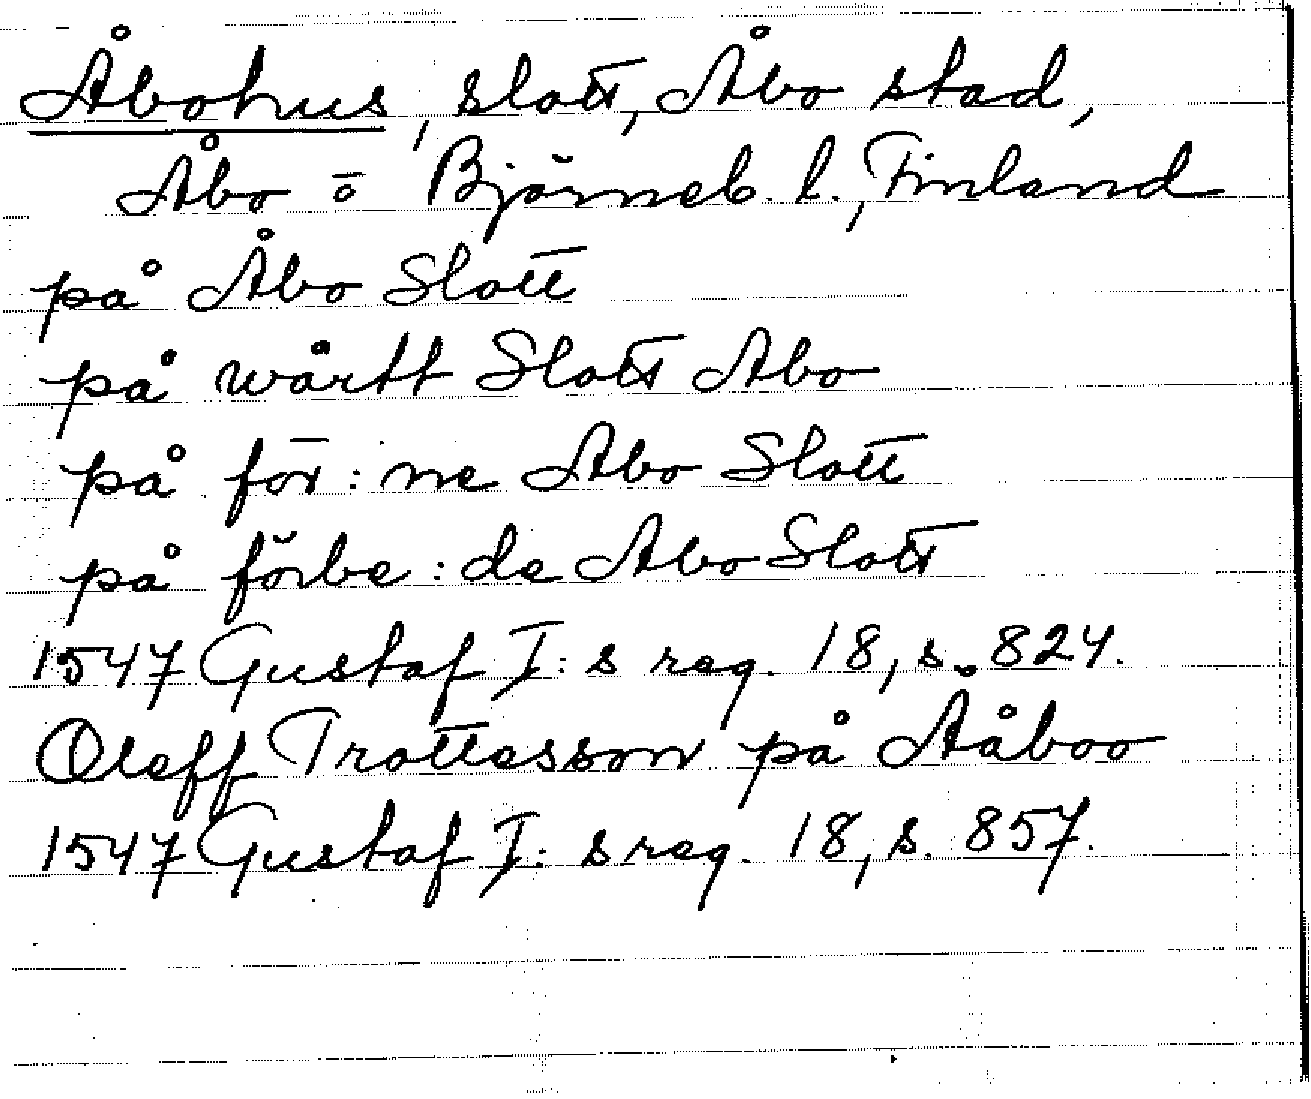 Åbohus, slott, Åbo stad,
Åbo o Björneb. l., Finland
på Åbo Slott
på wårtt Slott Abo
på för: ne Abo Slott
på förbe: de Abo Slott
1547 Gustaf I: s reg. 18, s. 824.
Oleff Trottesson på Aåboo
1547 Gustaf I: s reg. 18, s. 857.